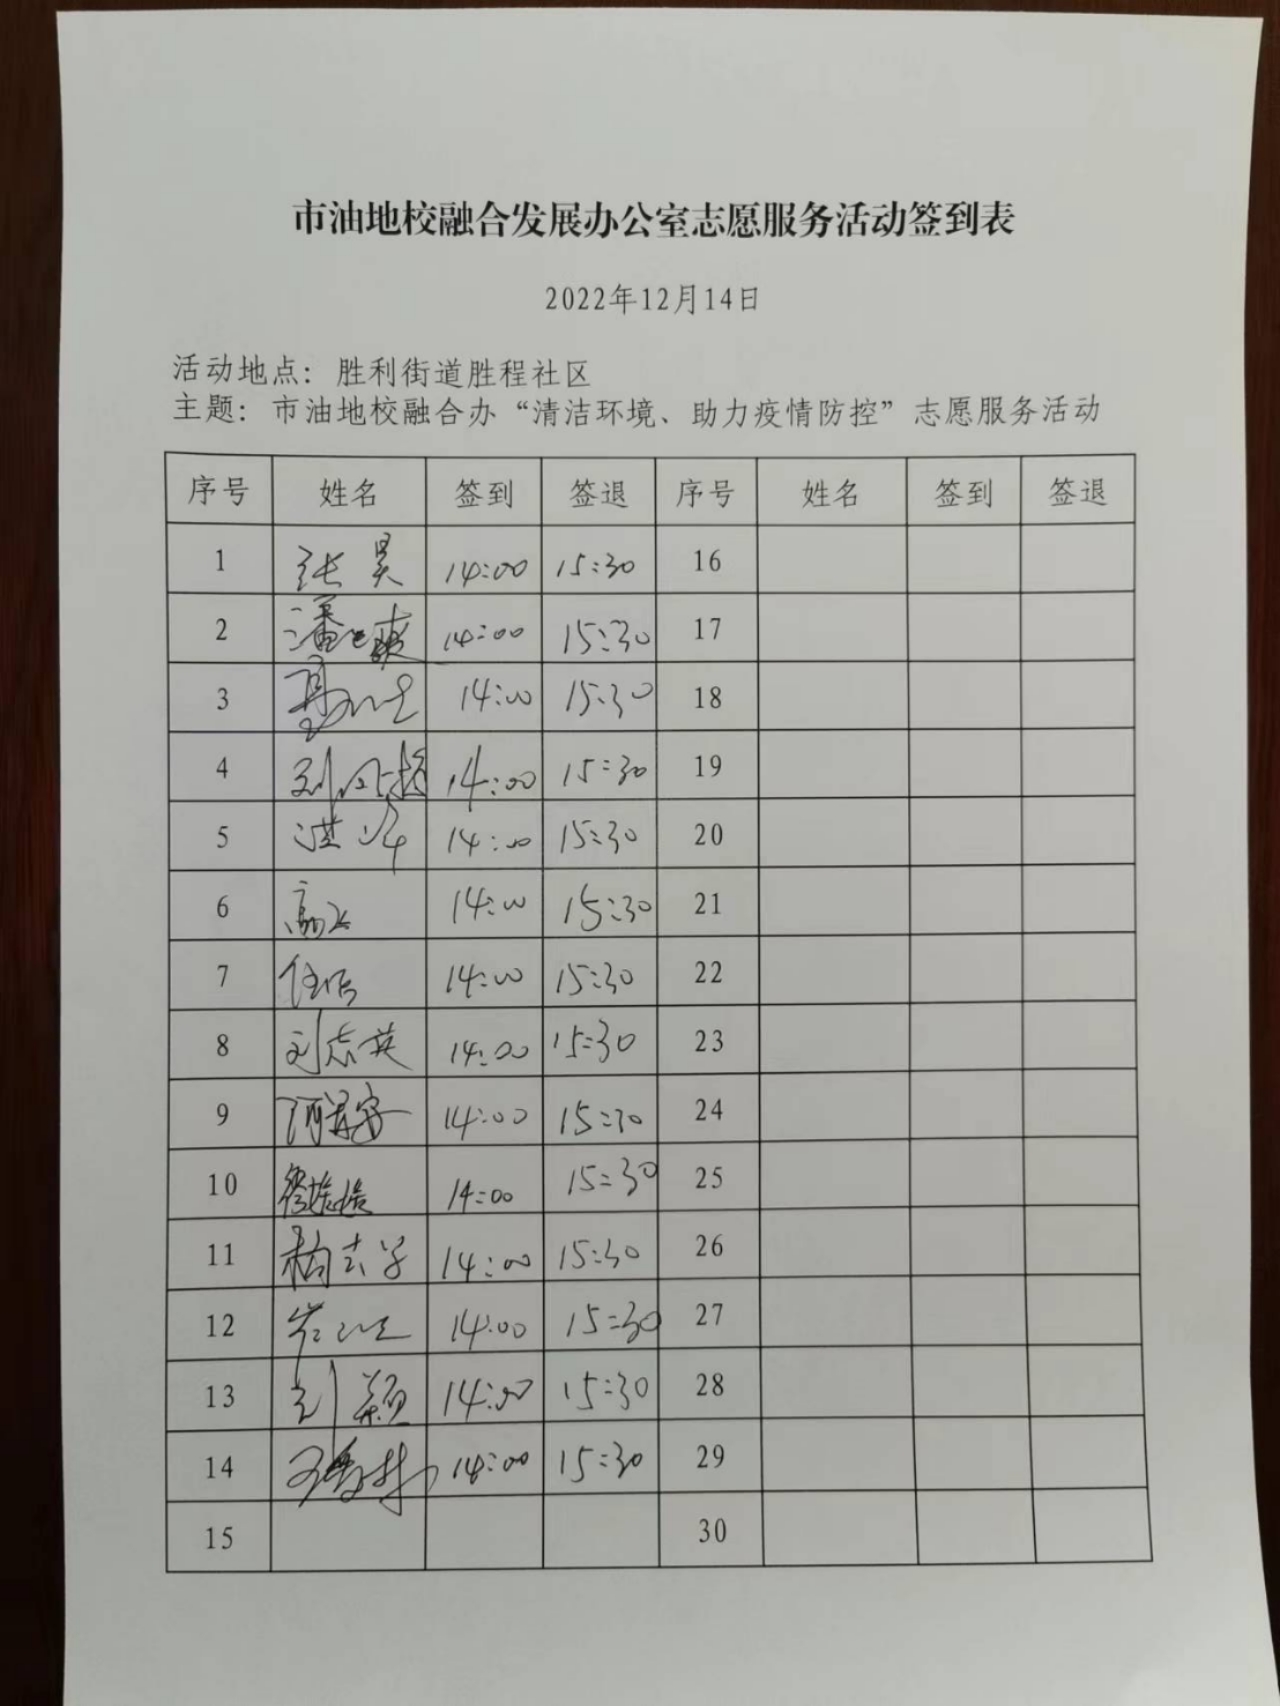 市油地校融合发展办公室志愿服务活动签到表
2022年12月14日
活动地点：胜利街道胜程社区
主题：市油地校融合办“清洁环境、助力疫情防控”志愿服务活动
序号 姓名 签到 签退 序号 姓名 签到 签退
1 张昊 14:00 15:30 16
2 潘 爽 14:00 15:30 17
3 14:00 15:30 18
4 刘 14:00 15:30 19
5 14:00 15:30 20
6 高 14:00 15:30 21
7 任 14:00 15:30 22
8 刘志英 14:00 15:30 23
9 14:00 15:30 24
10 14:00 15:30 25
11 14:00 15:30 26
12 14:00 15:30 27
13 刘颖 14:00 15:30 28
14 14:00 15:30 29
15 30